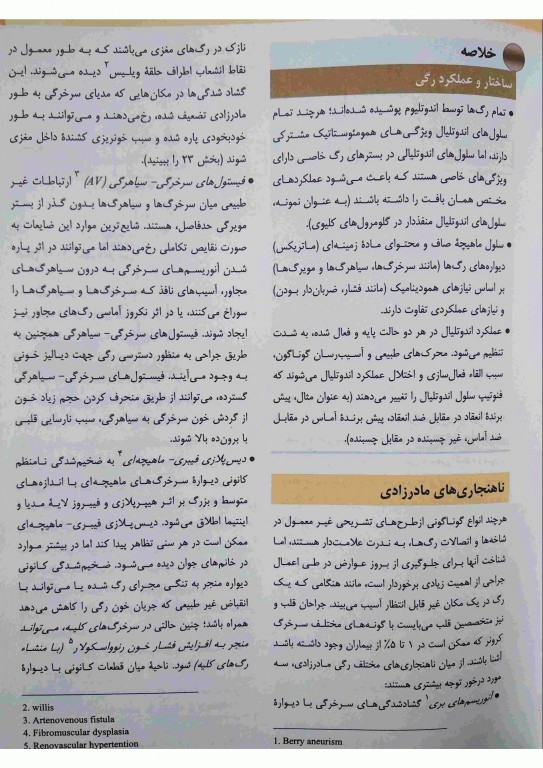 خلاصه
ساختار و عملکرد رگی
• تمام رگ‌ها توسط اندوتلیوم پوشیده شده‌اند؛ هرچند تمام
سلول‌های اندوتلیال ویژگی‌های همومئوستاتیک مشترکی
دارند، اما سلول‌های اندوتلیالی در بسترهای رگ خاصی دارای
ویژگی‌های خاصی هستند که باعث می‌شود عملکردهای
مختص همان بافت را داشته باشند (به عنوان نمونه،
سلول‌های اندوتلیال منفذدار در گلومرول‌های کلیوی).
• سلول ماهیچهٔ صاف و محتوای مادهٔ زمینه‌ای (ماتریکس)
دیواره‌های رگ‌ها (مانند سرخرگ‌ها، سیاهرگ‌ها و مویرگ‌ها)
بر اساس نیازهای همودینامیک (مانند فشار، ضربان‌دار بودن)
و نیازهای عملکردی تفاوت دارند.
• عملکرد اندوتلیال در هر دو حالت پایه و فعال شده، به شدت
تنظیم می‌شود. محرک‌های طبیعی و آسیب‌رسان گوناگون،
سبب القاء فعال‌سازی و اختلال عملکرد اندوتلیال می‌شوند که
فنوتیپ سلول اندوتلیال را تغییر می‌دهند (به عنوان مثال، پیش
برندهٔ انعقاد در مقابل ضد انعقاد، پیش برندهٔ آماس در مقابل
ضد آماس، غیر چسبنده در مقابل چسبنده).
ناهنجاری‌های مادرزادی
هرچند انواع گوناگونی ازطرح‌های تشریحی غیر معمول در
شاخه‌ها و اتصالات رگ‌ها، به ندرت علامت‌دار هستند، اما
شناخت آنها برای جلوگیری از بروز عوارض در طی اعمال
جراحی از اهمیت زیادی برخوردار است، مانند هنگامی که یک
رگ در یک مکان غیر قابل انتظار آسیب می‌بیند. جراحان قلب و
نیز متخصصین قلب می‌بایست با گونه‌های مختلف سرخرگ
کرونر که ممکن است در ۱ تا ۵٪ از بیماران وجود داشته باشد
آشنا باشند. از میان ناهنجاری‌های مختلف رگی مادرزادی، سه
مورد درخور توجه بیشتری هستند:
• آنوریسم‌های بری۱ گشادشدگی‌های سرخرگی با دیوارهٔ
1. Berry aneurism
نازک در رگ‌های مغزی می‌باشند که به طور معمول در
نقاط انشعاب اطراف حلقهٔ ویلیس۲ دیده می‌شوند. این
گشاد شدگی‌ها در مکان‌هایی که مدیای سرخرگی به طور
مادرزادی تضعیف شده، رخ می‌دهند و می‌توانند به طور
خودبخودی پاره شده و سبب خونریزی کشندهٔ داخل مغزی
شوند (بخش ۲۳ را ببینید).
• فیستول‌های سرخرگی- سیاهرگی (AV)۳ ارتباطات غیر
طبیعی میان سرخرگ‌ها و سیاهرگ‌ها بدون گذر از بستر
مویرگی حدفاصل، هستند. شایع‌ترین موارد این ضایعات به
صورت نقایص تکاملی رخ می‌دهند اما می‌توانند در اثر پاره
شدن آنوریسم‌های سرخرگی به درون سیاهرگ‌های
مجاور، آسیب‌های نافذ که سرخرگ‌ها و سیاهرگ‌ها را
سوراخ می‌کنند، یا در اثر نکروز آماسی رگ‌های مجاور نیز
ایجاد شوند. فیستول‌های سرخرگی- سیاهرگی همچنین به
طریق جراحی به منظور دسترسی رگی جهت دیالیز خونی
به وجود می‌آیند. فیستول‌های سرخرگی- سیاهرگی
گسترده، می‌توانند از طریق منحرف کردن حجم زیاد خون
از گردش خون سرخرگی به سیاهرگی، سبب نارسایی قلبی
با برون‌ده بالا شوند.
• دیس‌پلازی فیبری- ماهیچه‌ای۴ به ضخیم‌شدگی نامنظم
کانونی دیوارهٔ سرخرگ‌های ماهیچه‌ای با اندازه‌های
متوسط و بزرگ بر اثر هیپرپلازی و فیبروز لایهٔ مدیا و
اینتیما اطلاق می‌شود. دیس‌پلازی فیبری- ماهیچه‌ای
ممکن است در هر سنی تظاهر پیدا کند اما در بیشتر موارد
در خانم‌های جوان دیده می‌شود. ضخیم‌شدگی کانونی
دیواره منجر به تنگی مجرای رگ شده یا می‌تواند با
انقباض غیر طبیعی که جریان خون رگی را کاهش می‌دهد
همراه باشد؛ چنین حالتی در سرخرگ‌های کلیه، می‌تواند
منجر به افزایش فشار خون رنوواسکولار۵ (با منشاء
رگ‌های کلیه) شود. ناحیهٔ میان قطعات کانونی با دیوارهٔ
2. willis
3. Artenovenous fistula
4. Fibromuscular dysplasia
5. Renovascular hypertention